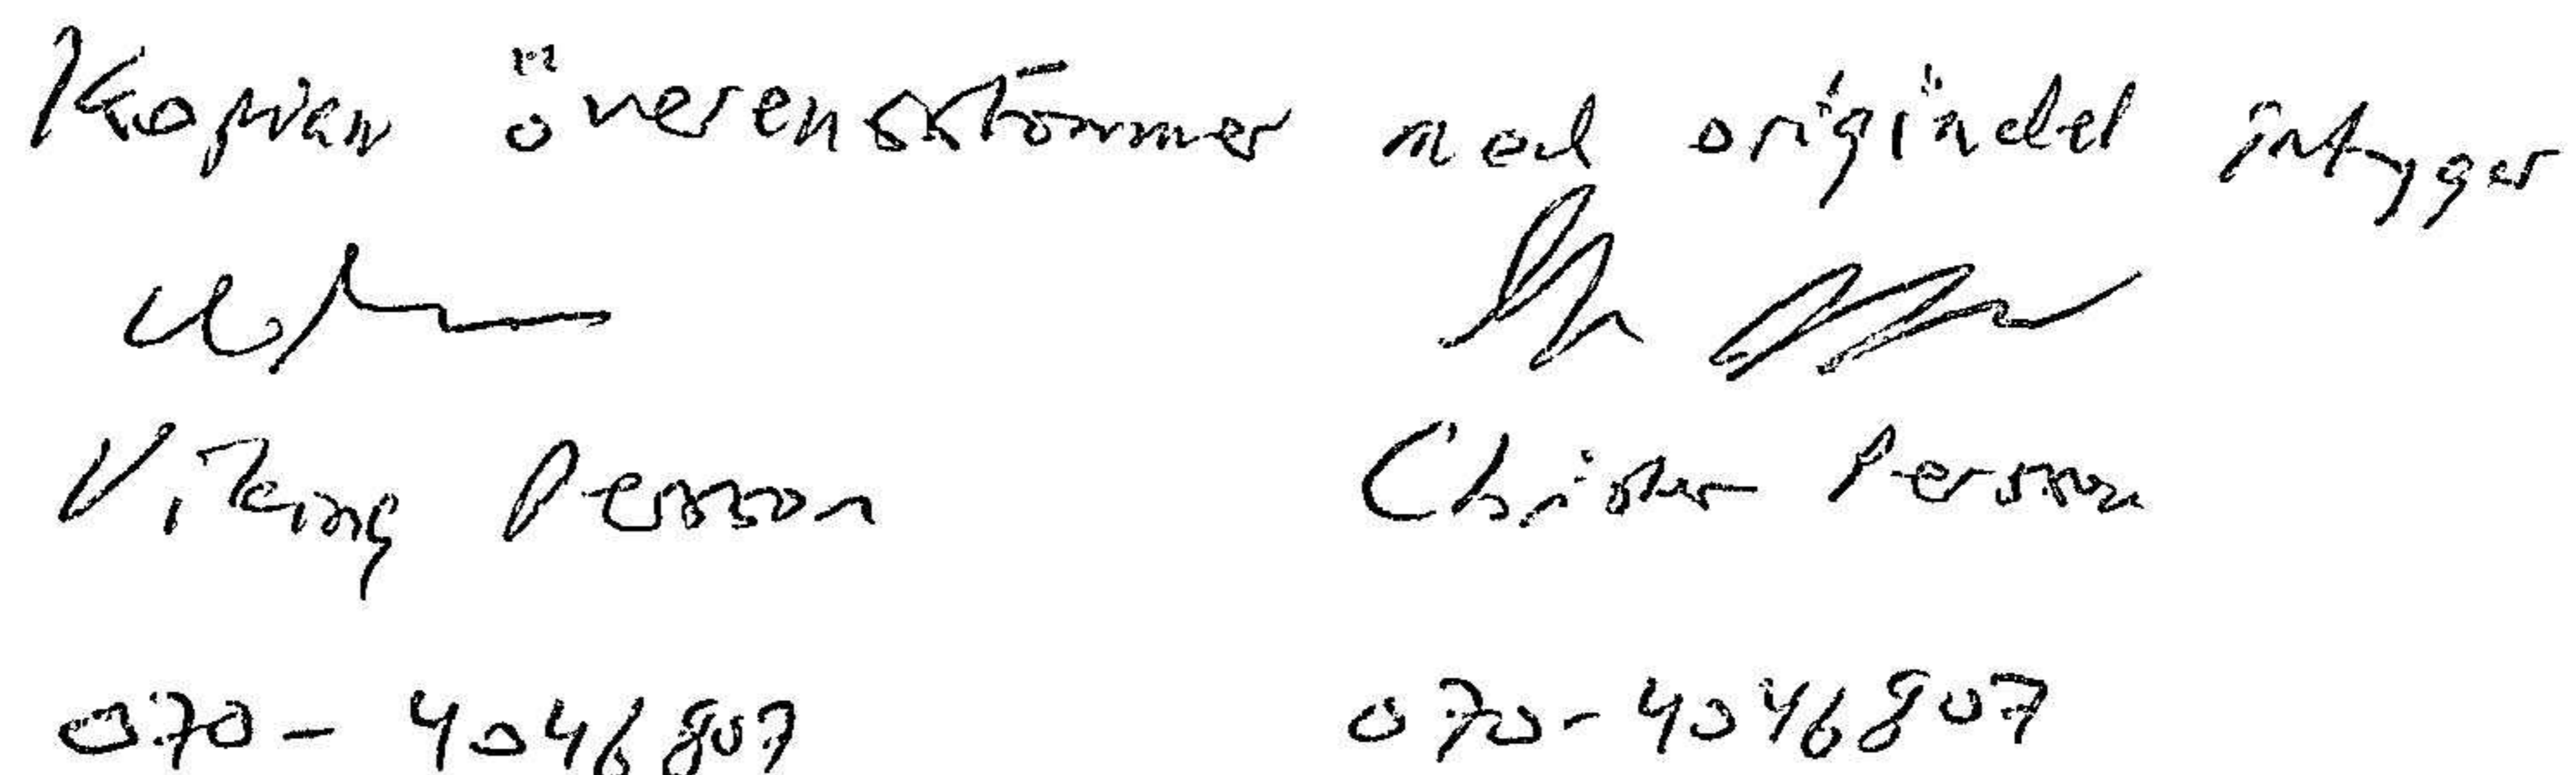 Kopian överensstömmer med originalet intygger
Viking Persson Christer Persson
070-4046807 070-4046807